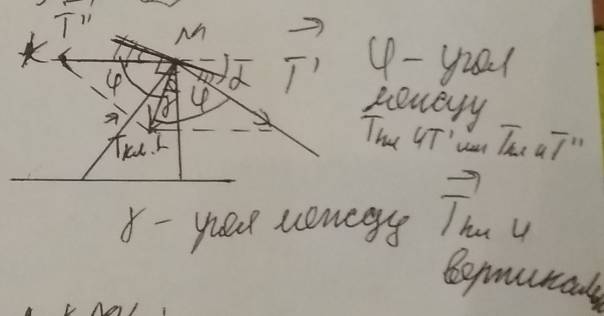 T"
M
T'
φ
φ
γ
α
Tкл.
φ – угол
между
Tкл и T' или Tкл и T"
γ – угол между Tкл и
вертикалью